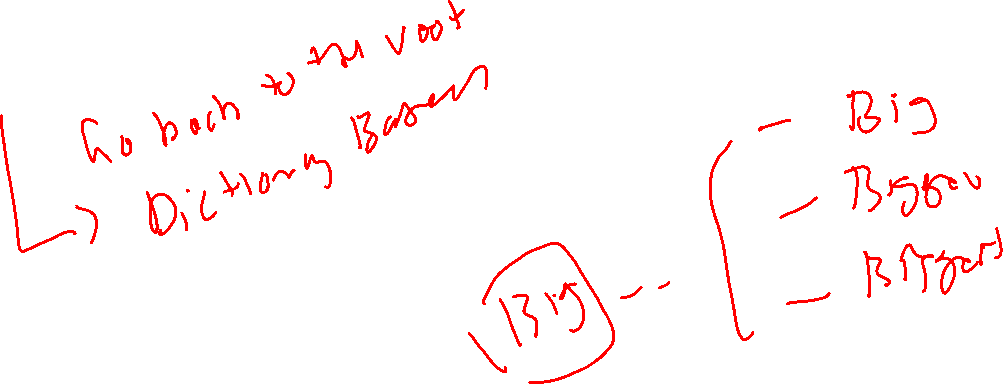 Go back to the root
Dictionary Based
Big
Bigger
Biggest
Big